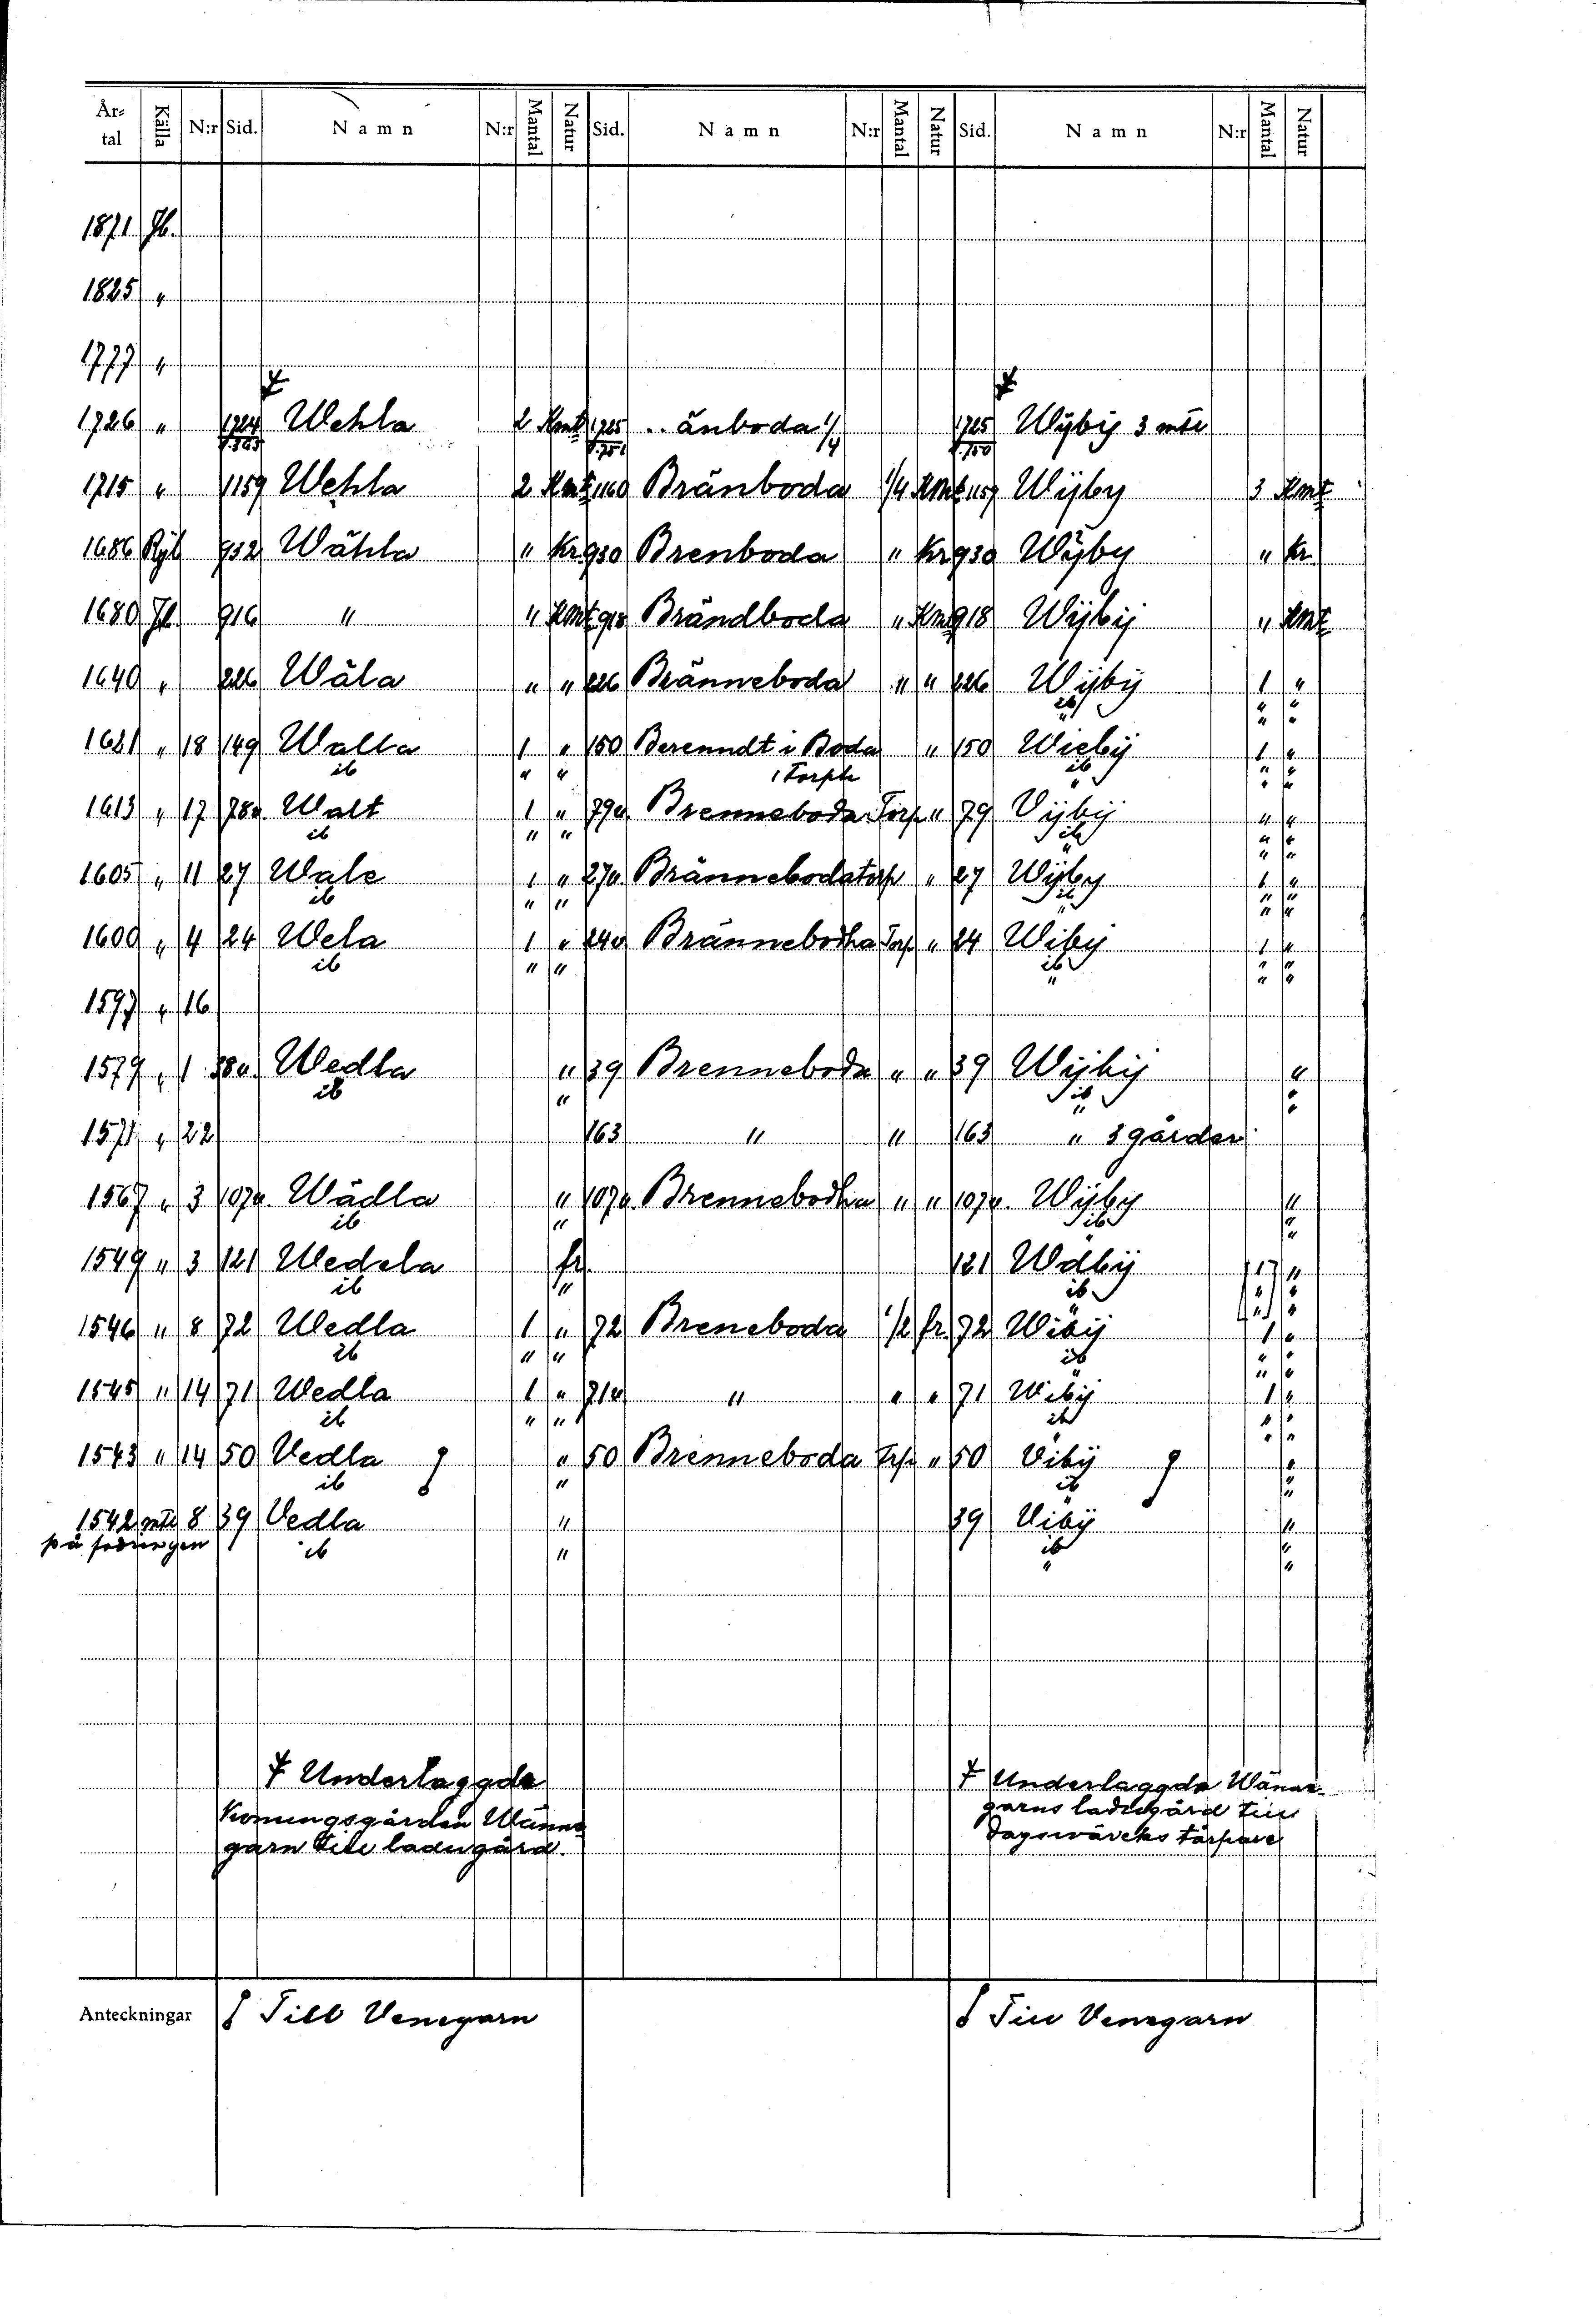 År-tal Källa N:r Sid. Namn N:r Mantal Natur Sid. Namn N:r Mantal Natur Sid. Namn N:r Mantal Natur
1871 Jb.
1825 "
1777 "
1726 " 1724 Wehla 2 Kmt 1725 .. änboda 1/4 1725 Wÿbÿ 3 mtl
1715 " 1159 Wehla 2 Kmt 1160 Bränboda 1/4 Kmt 1159 Wijby 3 Kmt
1686 Rjb 932 Wähla " Kr 930 Brenboda " Kr 930 Wÿby " Kr.
1680 Jb 916 " " Kmt 918 Brändboda " Kmt 918 Wijbÿ " Kmt
1640 " 226 Wäla " " 226 Bränneboda " " 226 Wijbÿ 1 "
ib " "
" " "
1621 " 18 149 Walla 1 " 150 Berenndt i Boda " 150 Wiebÿ 1 "
ib " " i Torph ib " "
" " "
1613 " 17 78v. Walt 1 " 79v. Brenneboda Torp " 79 Vijbÿ " "
ib " " ib " "
" " "
1605 " 11 27 Wale 1 " 27v. Brännebodatorp " 27 Wijby 1 "
ib " " ib " "
" " "
1600 " 4 24 Wela 1 " 24v Brännebodha Torp " 24 Wibÿ 1 "
ib " " ib " "
" " "
1597 " 16
1579 " 1 38v. Wedla " 39 Brenneboda " " 39 Wijbÿ "
ib " ib "
" "
1571 " 22 163 " " 163 " 3 gårder
1567 " 3 107v. Wädla " 107v. Brennebodha " " 107v. Wijby "
ib " ib "
"
1549 " 3 121 Wedela fr. 121 Wdbÿ [1] "
ib " ib "
" "
1546 " 8 72 Wedla 1 " 72 Breneboda 1/2 fr. 72 Wibÿ 1 "
ib " " ib " "
" "
1545 " 14 71 Wedla 1 " 71v " " " 71 Wibÿ 1 "
ib " " ib " "
" "
1543 " 14 50 Vedla " 50 Brenneboda Trp " 50 Vibÿ "
ib " ib "
"
1542 mtl 8 39 Vedla " 39 Vibÿ "
på fodringen ib " ib "
" "
Underlaggda
Konungsgården Wänne
garn till ladugård.
Underlaggda Wänne-
garns ladugård till
Dagswärcks tårpare
Anteckningar Till Venegarn Till Venegarn